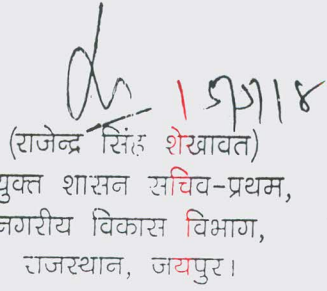 (राजेन्द्र सिंह शेखावत)
युक्त शासन सचिव-प्रथम,
नगरीय विकास विभाग,
राजस्थान, जयपुर।